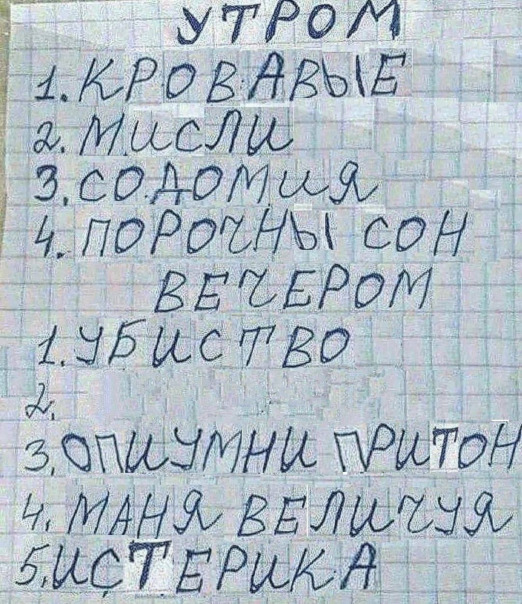 УТРОМ
1. КРОВАВЫЕ
2. МИСЛИ
3. СОДОМИЯ
4. ПОРОЧНЫ СОН
ВЕЧЕРОМ
1. УБИСТВО
2.
3. ОПИУМНИ ПРИТОН
4. МАНЯ ВЕЛИЧУЯ
5. ИСТЕРИКА